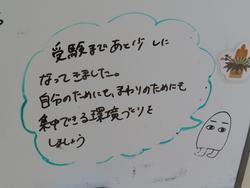 受験まであと少しに
なってきました。
自分のためにも、まわりのためにも
集中できる環境づくりを
しましょう